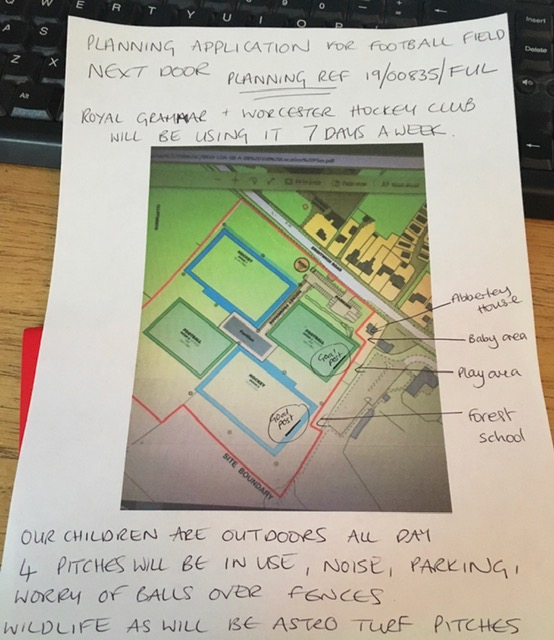 PLANNING APPLICATION FOR FOOTBALL FIELD
NEXT DOOR PLANNING REF 19/00835/FUL
ROYAL GRAMMAR + WORCESTER HOCKEY CLUB
WILL BE USING IT 7 DAYS A WEEK.
HOCKEY
FOOTBALL
FOOTBALL
Goal Post
HOCKEY
Goal Post
SITE BOUNDARY
Abberley House
Baby area
Play area
Forest school
OUR CHILDREN ARE OUTDOORS ALL DAY
4 PITCHES WILL BE IN USE, NOISE, PARKING,
WORRY OF BALLS OVER FENCES
WILDLIFE AS WILL BE ASTRO TURF PITCHES
W
E
R
T
Y
U
I
O
A
S
Z
X
Alt
Insert
Delete